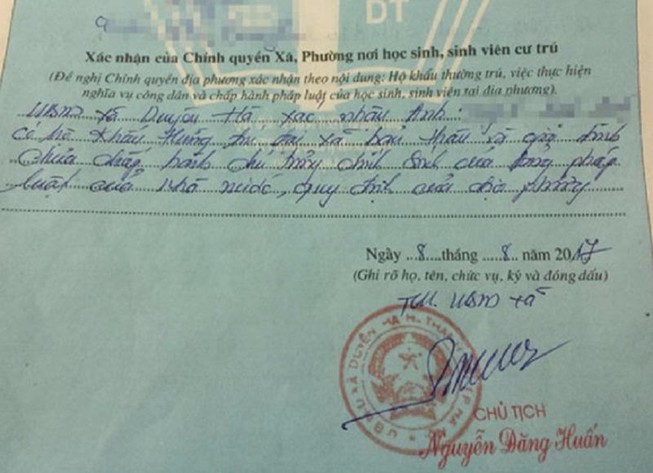 DT
Xác nhận của Chính quyền Xã, Phường nơi học sinh, sinh viên cư trú
(Đề nghị Chính quyền địa phương xác nhận theo nội dung: Hộ khẩu thường trú, việc thực hiện
nghĩa vụ công dân và chấp hành pháp luật của học sinh, sinh viên tại địa phương).
UBND xã Duyên Hà xác nhận Anh:
có hộ khẩu thường trú tại xã, bản thân và gia đình
chưa chấp hành chủ trương chính sách của Đảng, pháp
luật của nhà nước, quy định của địa phương
Ngày 8 tháng 8 năm 2017
(Ghi rõ họ, tên, chức vụ, ký và đóng dấu)
TM. UBND xã
U.B.N.D XÃ DUYÊN HÀ H. THA
CHỦ TỊCH
Nguyễn Đăng Huấn